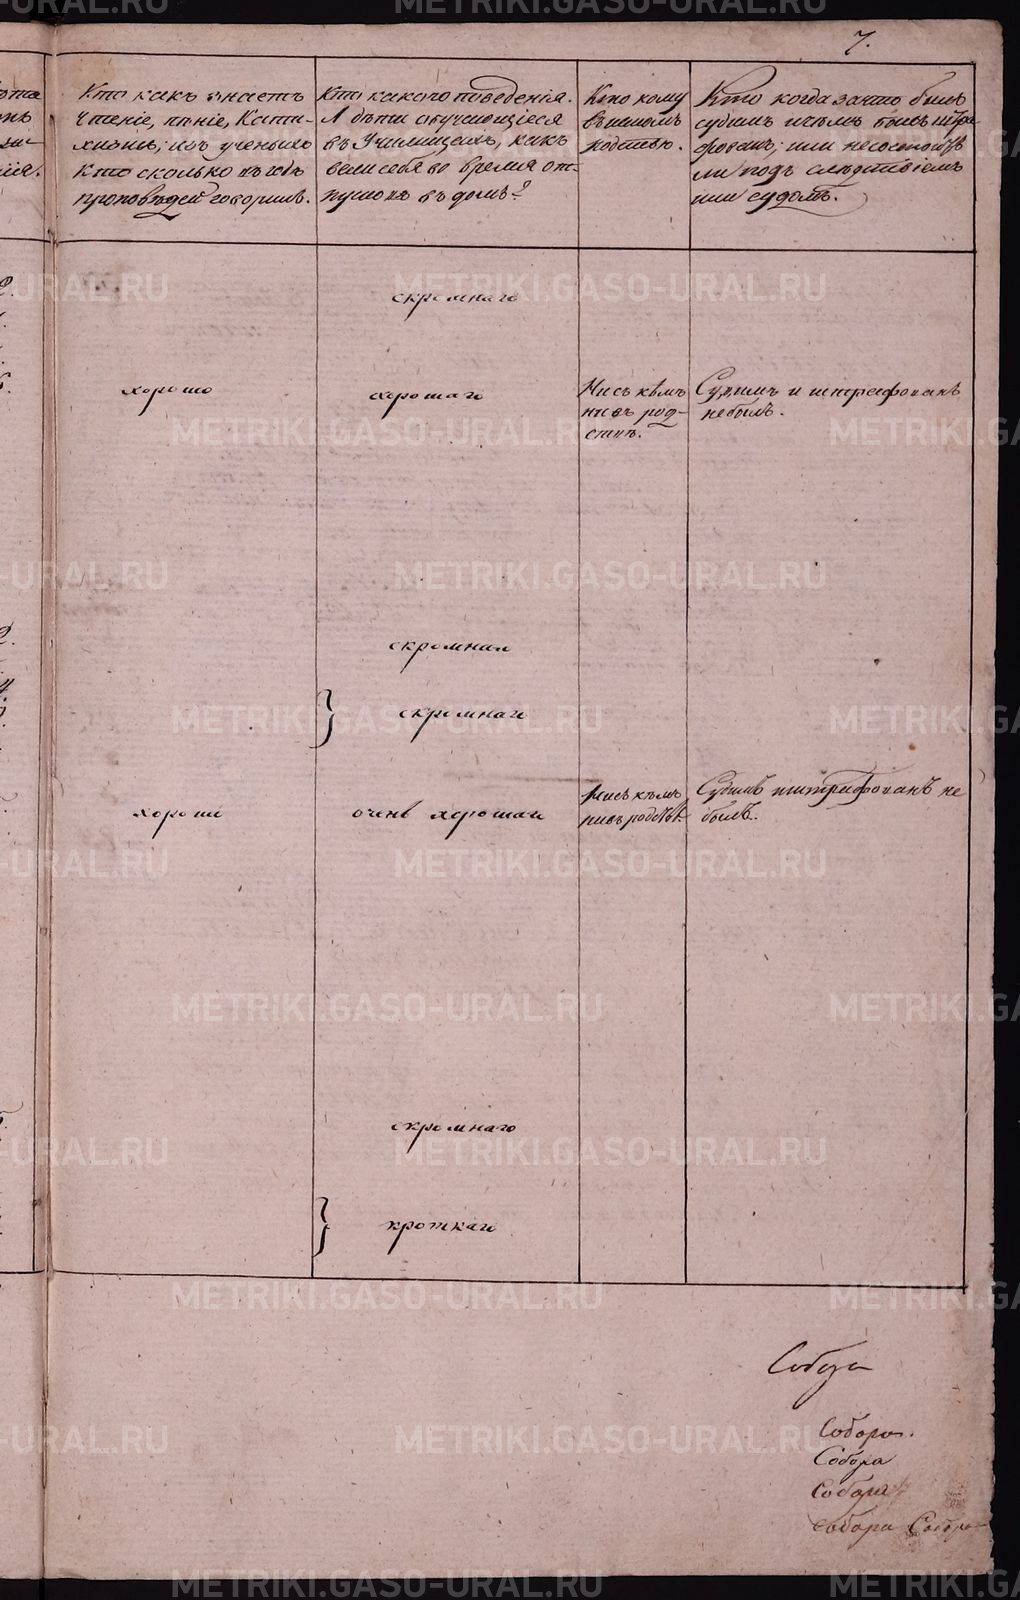 7.
Кто какъ знаетъ
Чтеніе, пѣніе, Кати-
хизисъ; изъ ученыхъ
кто сколько въ годъ
проповѣдей говорилъ.
Кто какого поведенія.
А дѣти обучающіеся
въ Училищахъ, какъ
вели себя во время от-
пусковъ въ домъ?
Кто кому
въ какомъ
родствѣ.
Кто когда за что былъ
судимъ и чѣмъ былъ штра-
фованъ; или не состоитъ
ли подъ слѣдствіемъ
или судомъ.
скромнаго
хорошо
хорошаго
Ни съ кѣмъ
ни въ род-
ствѣ.
Судимъ и штрафованъ
не былъ.
скромная
скромнаго
хорошо
очень хорошаго
Ни съ кѣмъ
ни въ родствѣ.
Судимъ и штрафованъ не
былъ.
скромнаго
кроткаго
Собора
Собора.
Собора
Собора
Собора Собора
METRIKI.GASO-URAL.RU